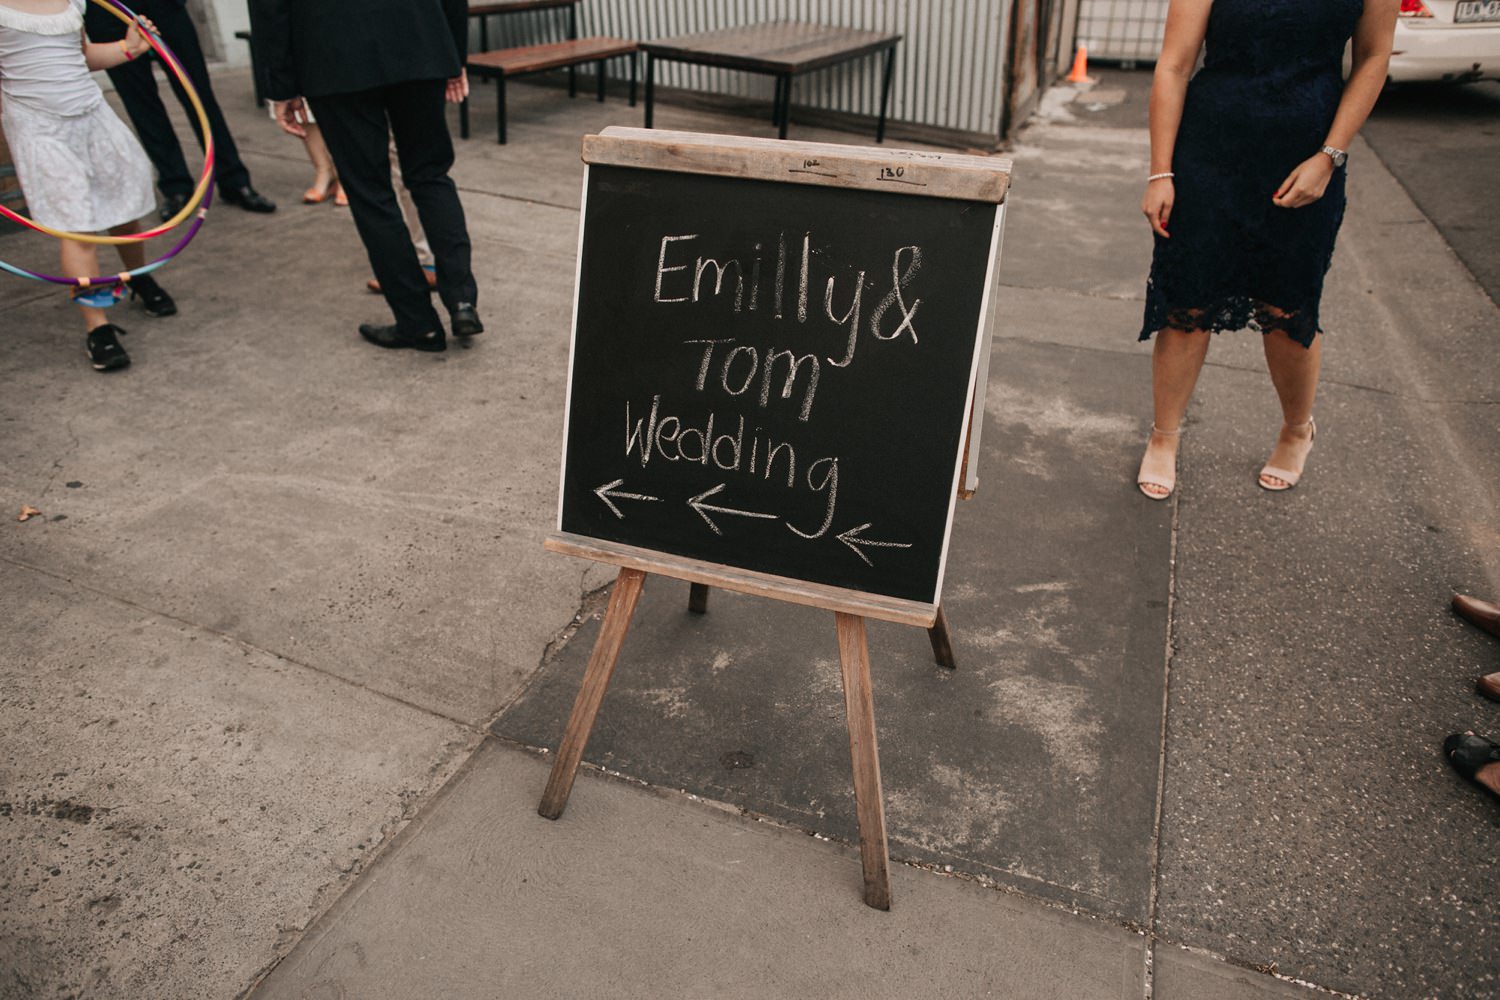 102 180
Emilly &
Tom
Wedding
← ← ←